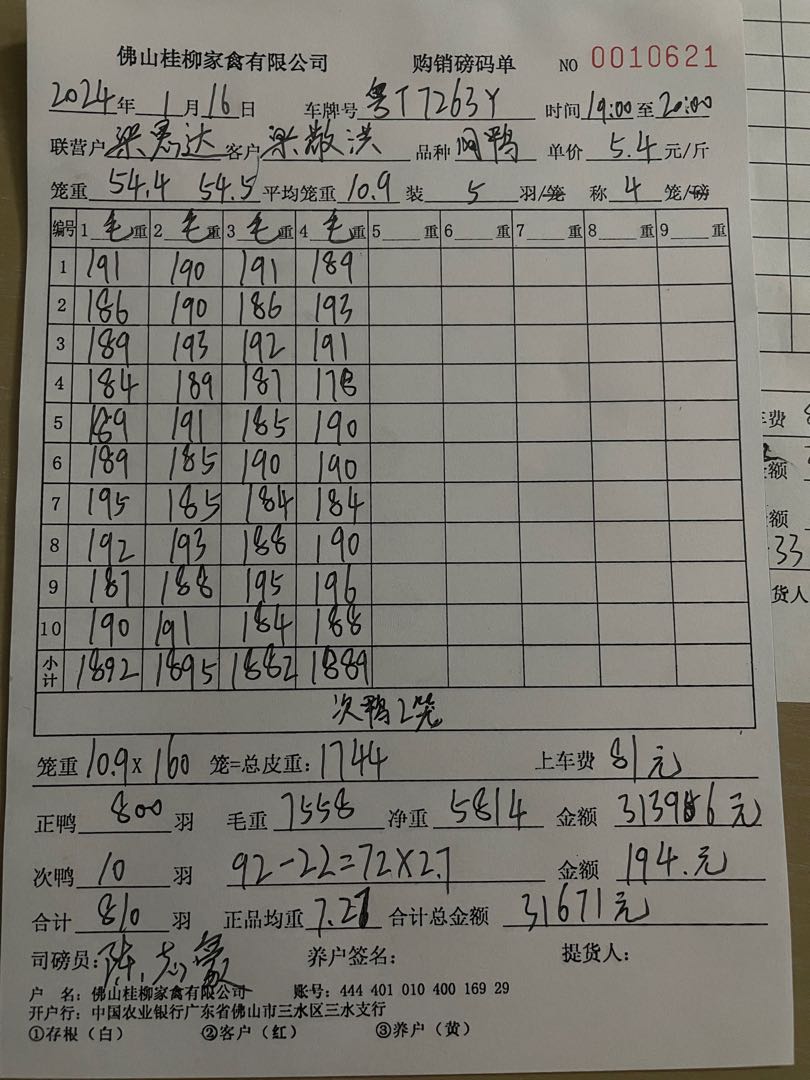 佛山桂柳家禽有限公司 购销磅码单 NO 0010621
2024年 1月16日 车牌号 粤T7263Y 时间 19:00至20:00
联营户 梁惠达 客户 梁敬洪 品种 鸭 单价 5.4 元/斤
笼重 54.4 54.5 平均笼重 10.9 装 5 羽/笼 称 4 笼/磅
编号 1 毛重 2 毛重 3 毛重 4 毛重 5 重 6 重 7 重 8 重 9 重
1 191 190 191 189
2 186 190 186 193
3 189 193 192 191
4 184 189 187 178
5 189 191 185 190
6 189 185 190 190
7 195 185 184 184
8 192 193 188 190
9 187 188 195 196
10 190 191 184 188
小计 1892 1895 1882 1889
次鸭2笼
笼重 10.9 X 160 笼=总皮重: 1744 上车费 81元
正鸭 800 羽 毛重 7558 净重 5814 金额 31396元
次鸭 10 羽 92-22=72X2.7 金额 194.元
合计 810 羽 正品均重 7.27 合计总金额 31671元
司磅员: 陈志 养户签名: 提货人:
户 名: 佛山桂柳家禽有限公司 账号: 444 401 010 400 169 29
开户行: 中国农业银行广东省佛山市三水区三水支行
①存根（白） ②客户（红） ③养户（黄）
车费
金额
额
33
货人